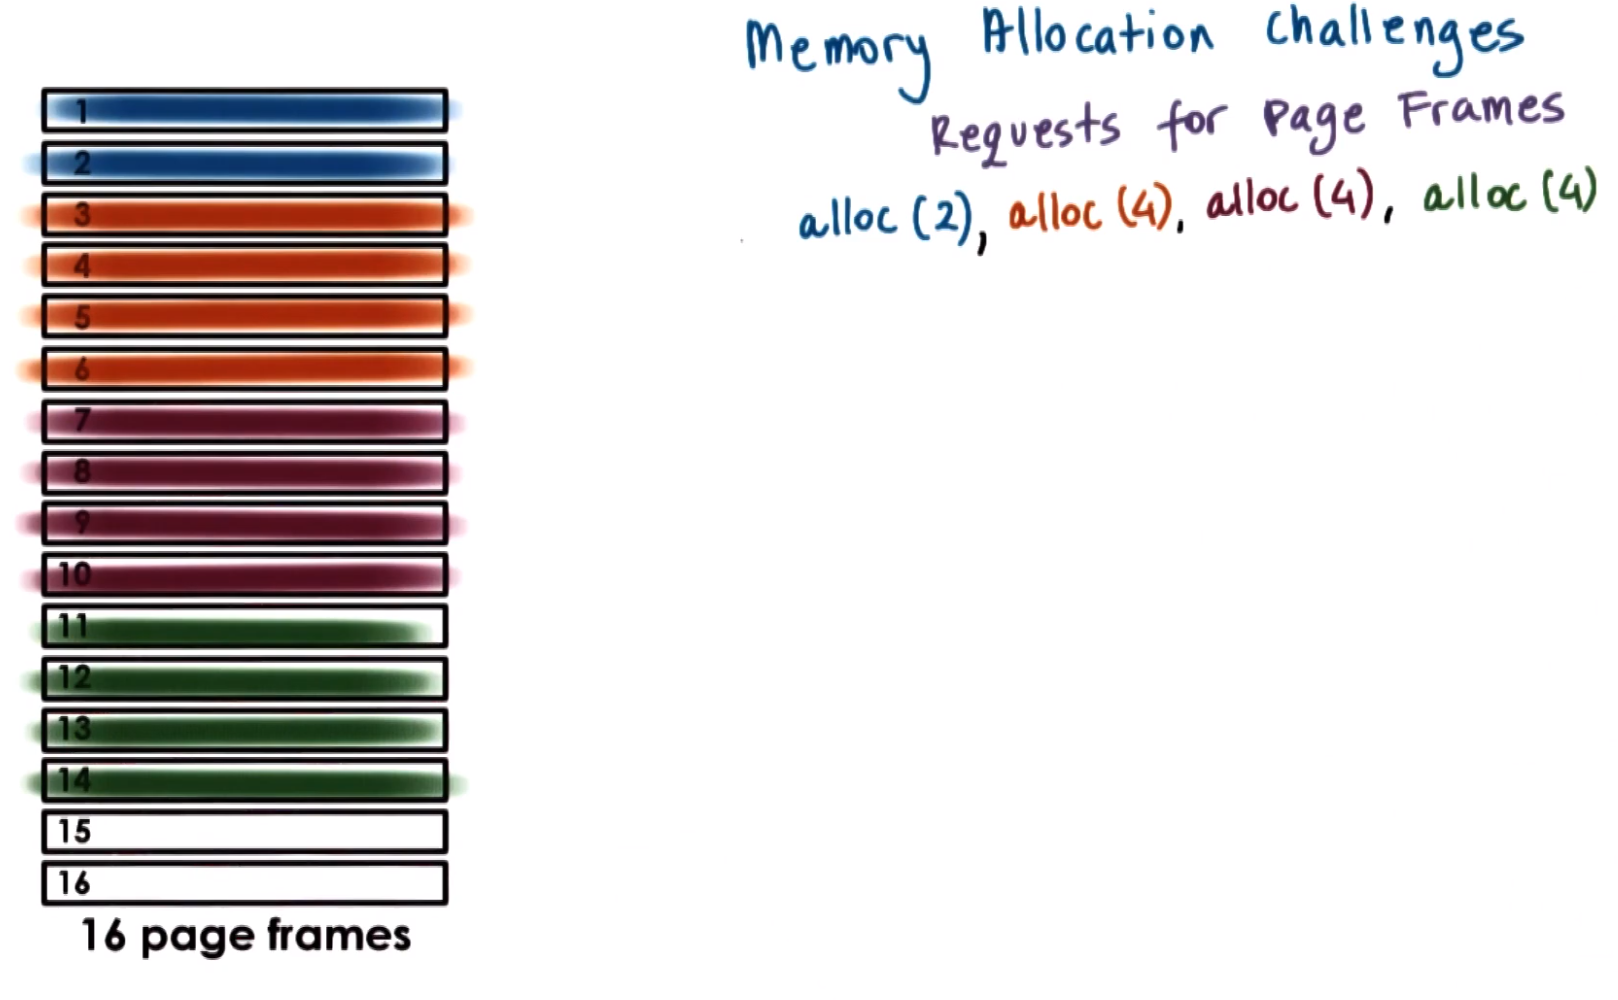 Memory Allocation Challenges
Requests for Page Frames
alloc (2), alloc (4), alloc (4), alloc (4)
1
2
3
4
5
6
7
8
9
10
11
12
13
14
15
16
16 page frames